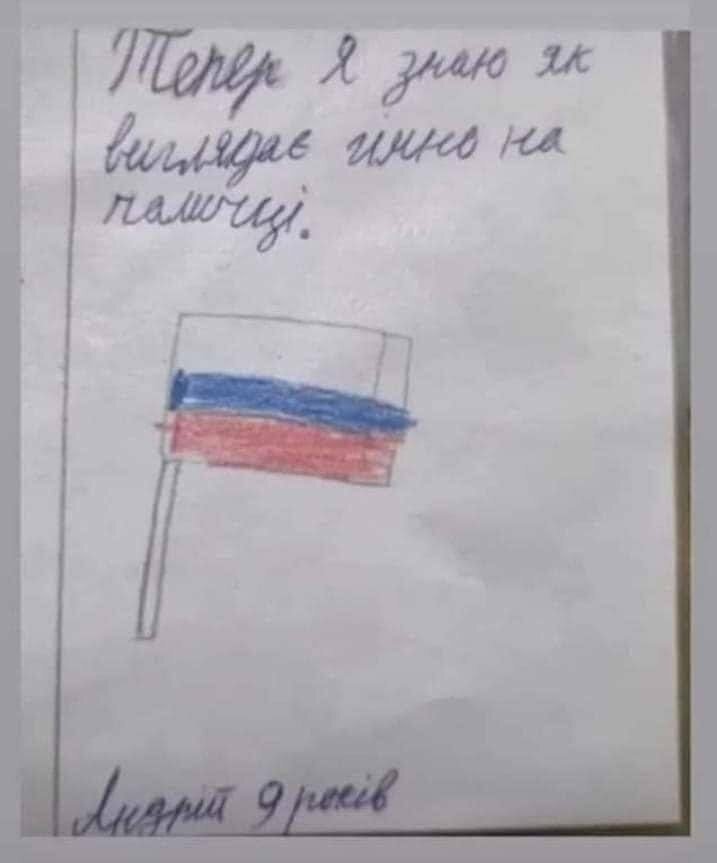 Тепер я знаю як
виглядає гімно на
паличці.
Андрій 9 років